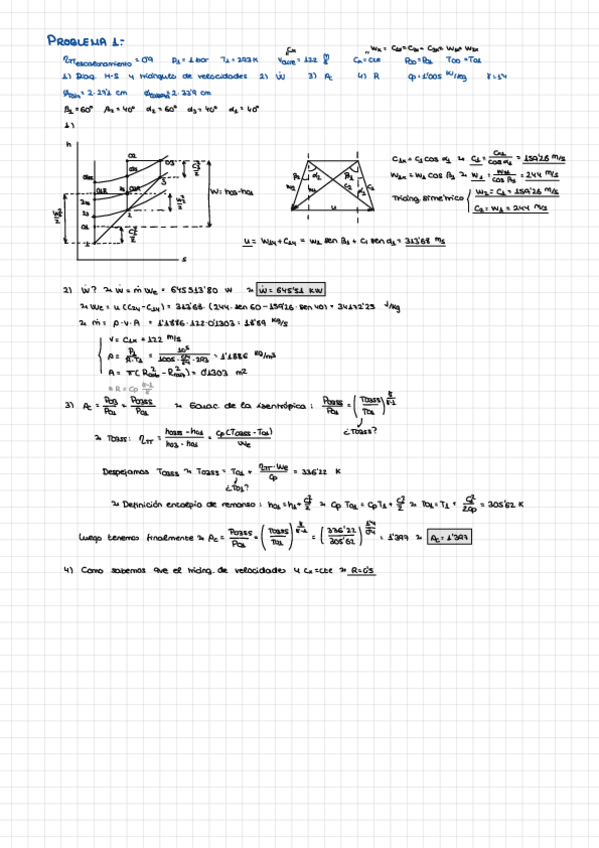 PROBLEMA 1:
ηTT escalonamiento = 0'9 P1 = 1 bar T1 = 293 K Cx Vaire = 122 m/s Cx = cte P00 = P01 T00 = T01
1) Diag. H-S y triángulo de velocidades 2) Ẇ 3) Rc 4) R Cp = 1'005 kJ/kg γ = 1'4
β1 = 60º β2 = 40º α2 = 60º α3 = 40º α1 = 40º
1)
h
W = h03 - h01
s
u
C1x = C1 cos α1 → C1 = C1x / cos α1 = 159'26 m/s
W1x = W1 cos β1 → W1 = W1x / cos β1 = 244 m/s
Triáng. simétrico
W2 = C1 = 159'26 m/s
C2 = W1 = 244 m/s
u = W1y + C1y = W1 sen β1 + C1 sen α1 = 313'68 m/s
2) Ẇ? → Ẇ = ṁ We = 645513'80 W → Ẇ = 645'51 KW
→ We = u (C2y - C1y) = 313'68 · (244 · sen 60 - 159'26 · sen 40) = 34172'25 J/kg
→ ṁ = ρ · V · A = 1'1886 · 122 · 0'1303 = 18'89 kg/s
V = C1x = 122 m/s
= 1'1886 kg/m3
A = π (R² - R²) = 0'1303 m2
→ R = Cp γ-1 / γ
3) Rc = P03 / P01 = P03ss / P01 → Ecuac. de la isentrópica : P03ss / P01 = (T03ss / T01) γ / γ-1
¿T03ss?
→ T03ss : ηTT = h03ss - h01 / h03 - h01 = Cp (T03ss - T01) / We
Despejamos T03ss → T03ss = T01 + ηTT · We / Cp = 336'22 K
¿T01?
→ Definición entalpía de remanso : h01 = h1 + C1² / 2 → Cp T01 = Cp T1 + C1² / 2 → T01 = T1 + C1² / 2Cp = 305'62 K
Luego tenemos finalmente → Rc = P03ss / P01 = (T03ss / T01) γ / γ-1 = (336'22 / 305'62) 1'4 / 0'4 = 1'397 → Rc = 1'397
4) Como sabemos que el triáng. de velocidades y Cx = cte → R = 0'5